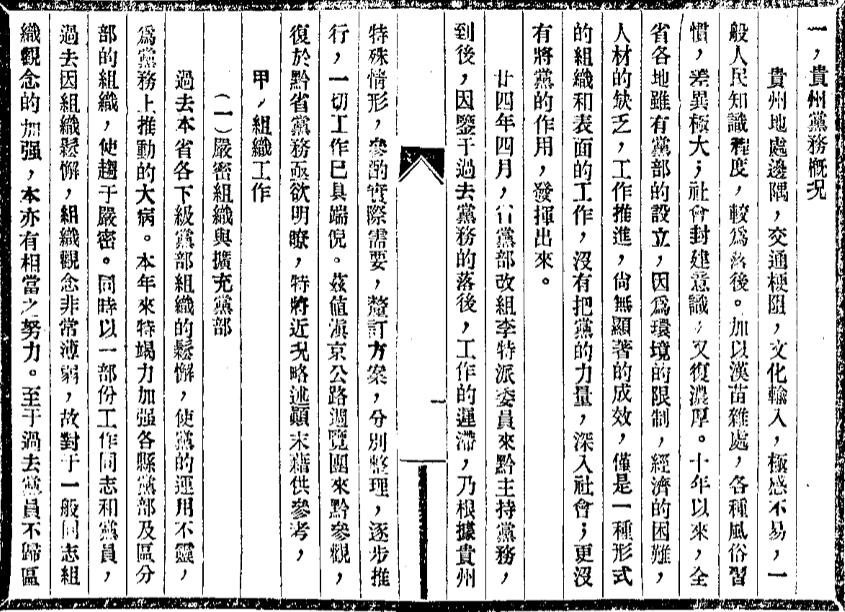 一，貴州黨務概况
貴州地處邊隅，交通梗阻，文化輸入，極感不易，一
般人民知識程度，較爲落後。加以漢苗雜處，各種風俗習
慣，差異極大；社會封建意識，又復濃厚。十年以來，全
省各地雖有黨部的設立，因爲環境的限制，經濟的困難，
人材的缺乏，工作推進，尙無顯著的成效，僅是一種形式
的組織和表面的工作，沒有把黨的力量，深入社會；更沒
有將黨的作用，發揮出來。
廿四年四月，省黨部改組李特派委員來黔主持黨務，
到後，因鑒于過去黨務的落後，工作的遲滯，乃根據貴州
一
特殊情形，參酌實際需要，釐訂方案，分別整理，逐步推
行，一切工作已具端倪。茲值滇京公路週覽團來黔參觀，
復於黔省黨務亟欲明瞭，特將近況略述顚末藉供參考，
甲，組織工作
（一）嚴密組織與擴充黨部
過去本省各下級黨部組織的鬆懈，使黨的運用不靈，
爲黨務上推動的大病。本年來特竭力加强各縣黨部及區分
部的組織，使趨于嚴密。同時以一部份工作同志和黨員，
過去因組織鬆懈，組織觀念非常薄弱，故對于一般同志組
織觀念的加强，本亦有相當之努力。至于過去黨員不歸區